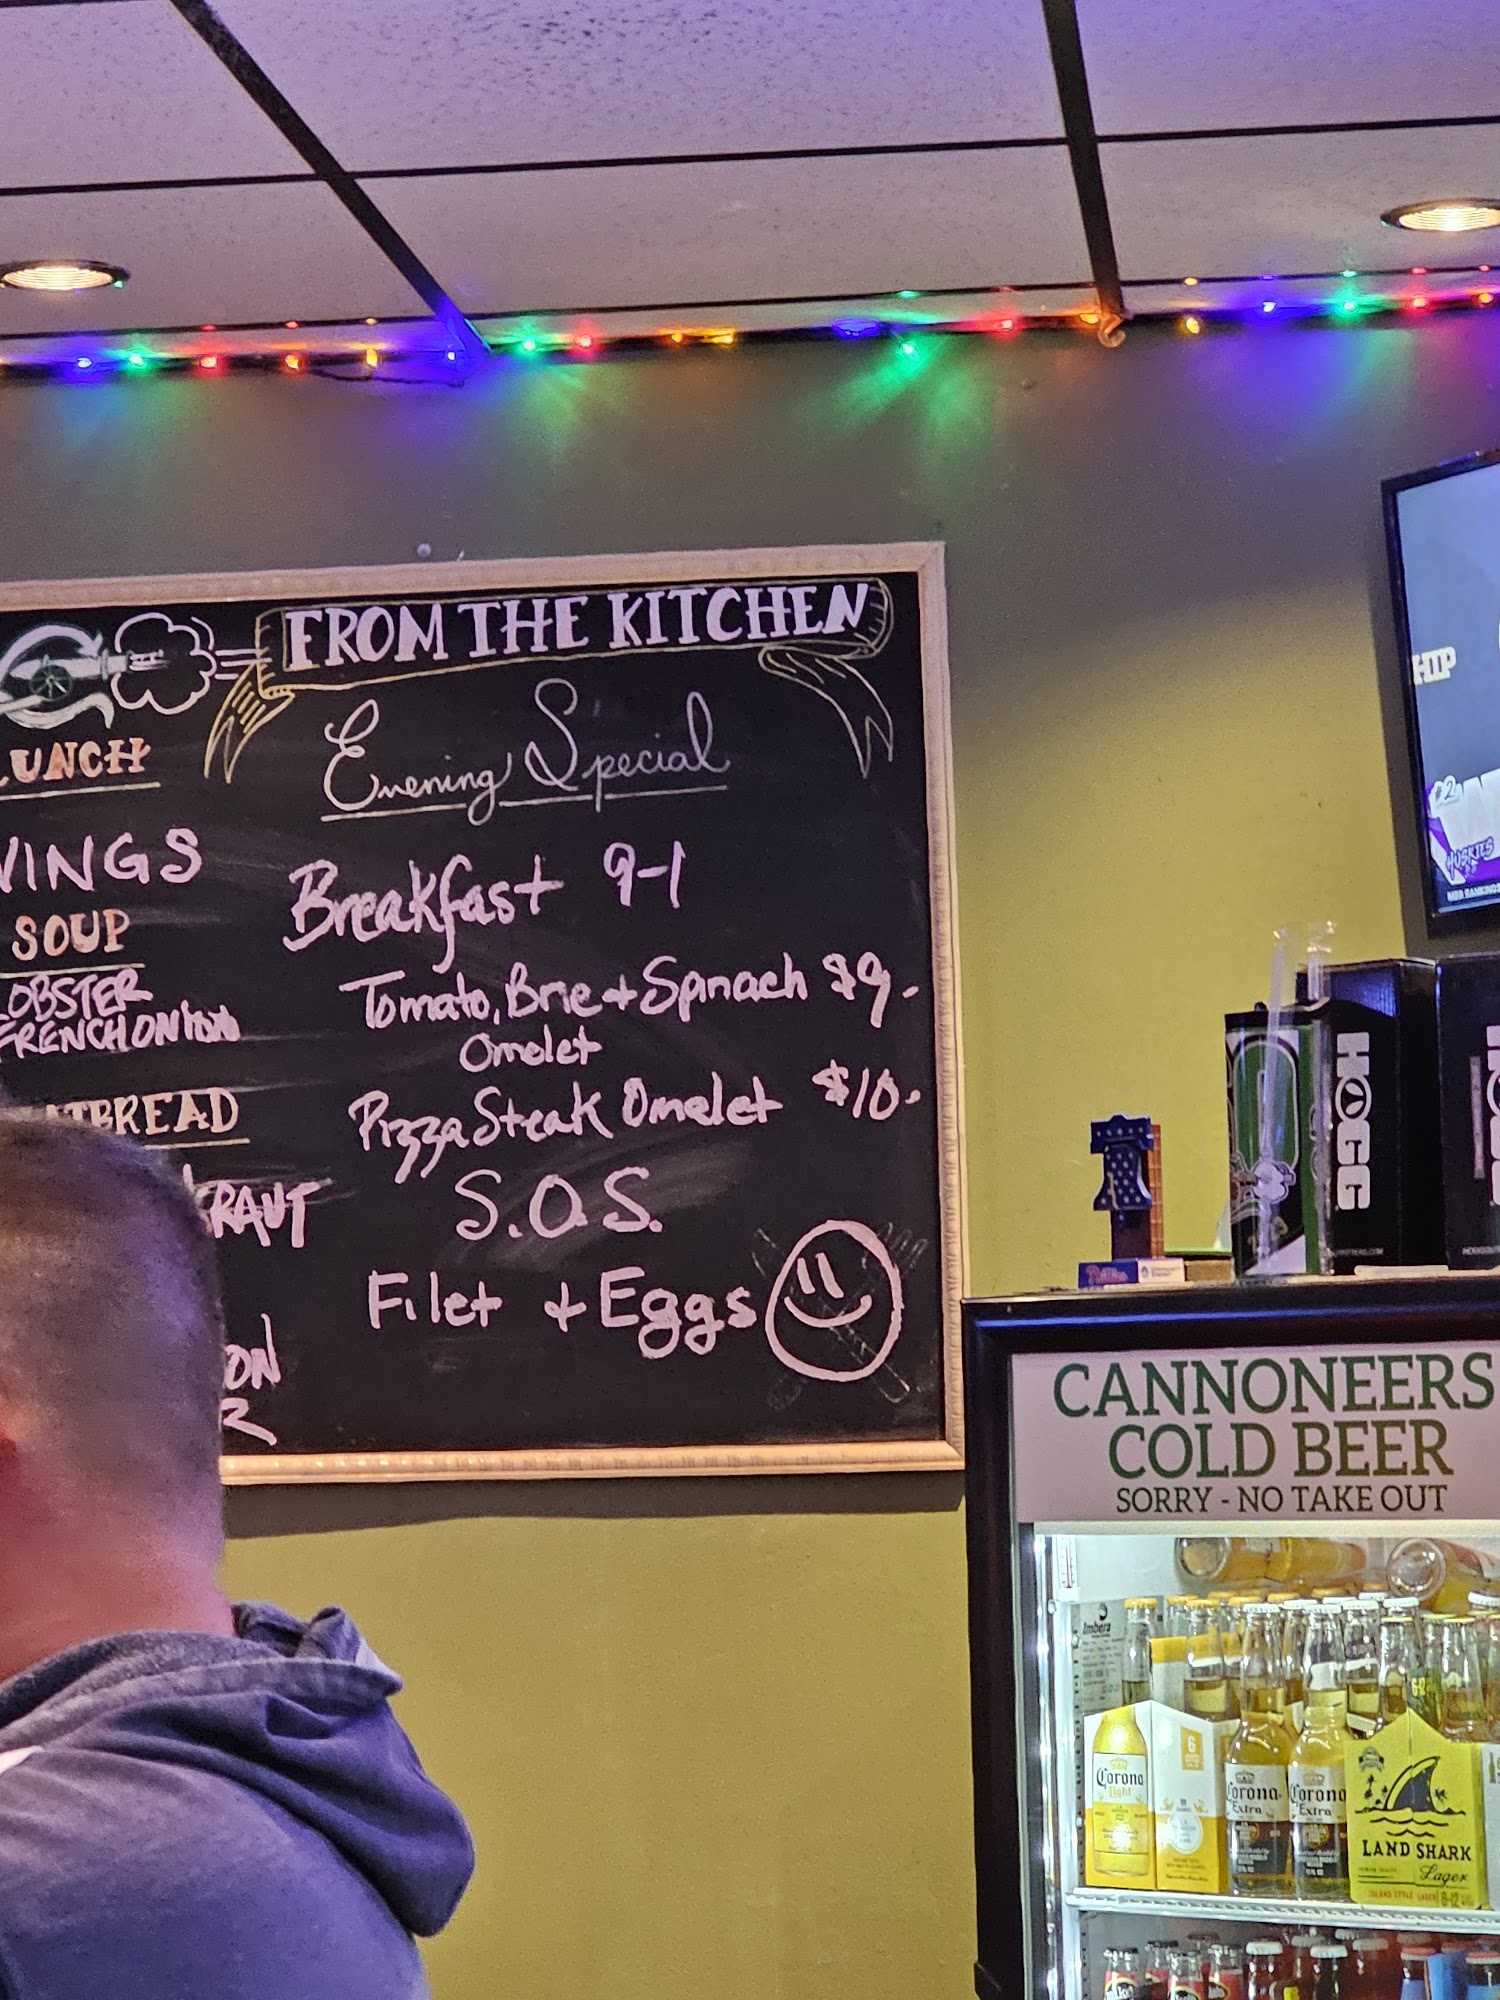 FROM THE KITCHEN
Evening Special
Breakfast 9-1
Tomato, Brie + Spinach $9.
Omelet
Pizza Steak Omelet $10.
S.O.S.
Filet + Eggs
LUNCH
WINGS
SOUP
LOBSTER
FRENCH ONION
TBREAD
KRAUT
ON
R
HIP
#2
HUSKIES
HOGG
Phillies
CANNONEERS
COLD BEER
SORRY - NO TAKE OUT
Imbera
Corona
Light
6
Corona
Extra
Corona
Extra
LAND SHARK
Lager
ISLAND STYLE LAGER